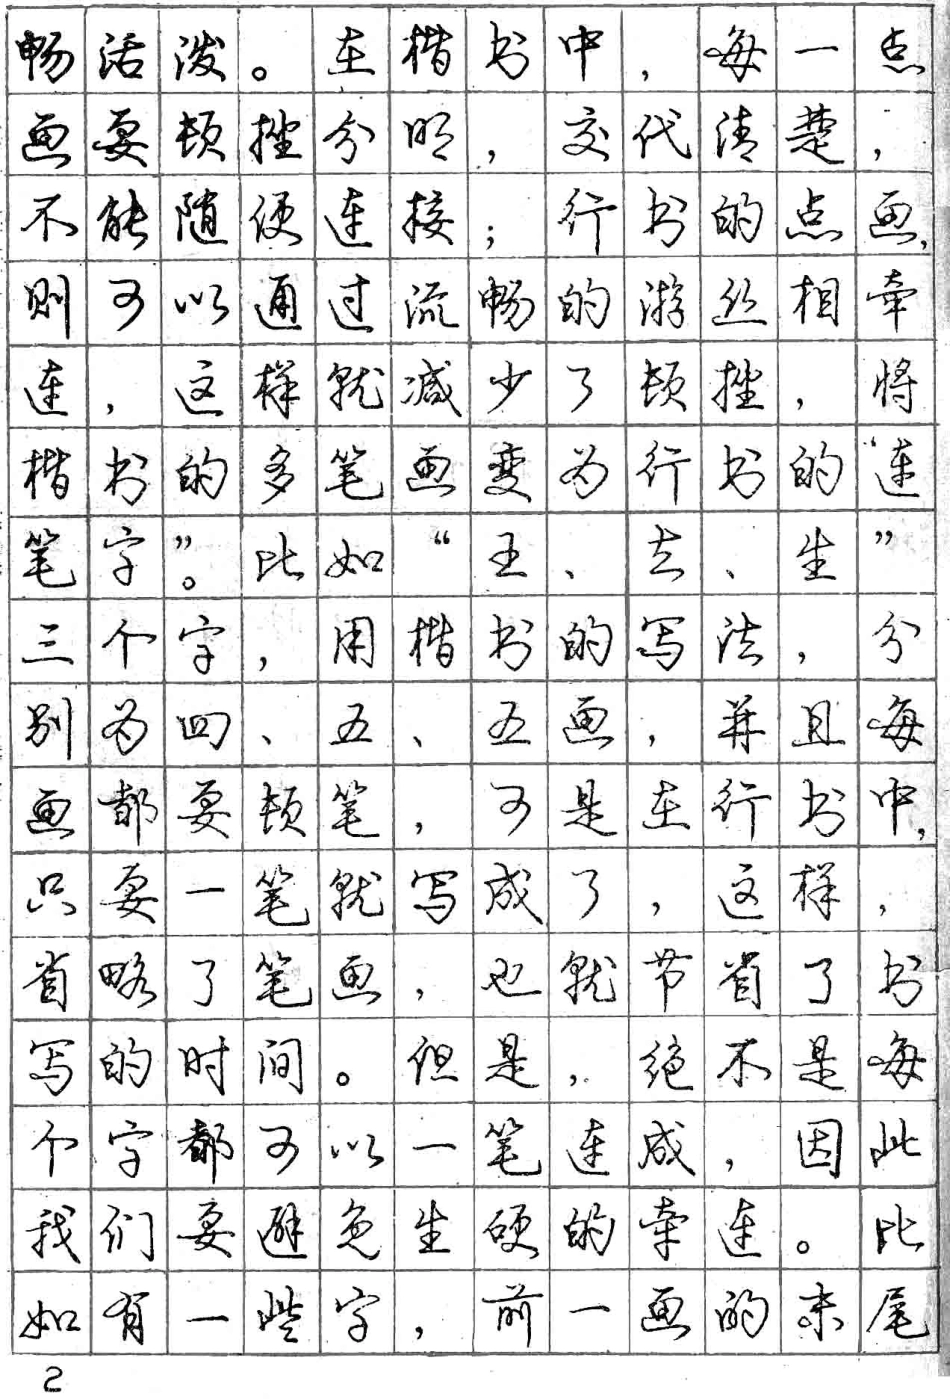 畅活泼。在楷书中，每一点
画要顿挫分明，交代清楚，
不能随便连接；行书的点画，
则可以通过流畅的游丝相牵
连，这样就减少了顿挫，将
楷书的多笔画变为行书的“连
笔字”。比如“王、去、生”
三个字，用楷书的写法，分
别为四、五、五画，并且每
画都要顿笔，可是在行书中，
只要一笔就写成了，这样，
省略了笔画，也就节省了书
写的时间。但是，绝不是每
个字都可以一笔连成，因此
我们要避免生硬的牵连。比
如有一些字，前一画的末尾
2